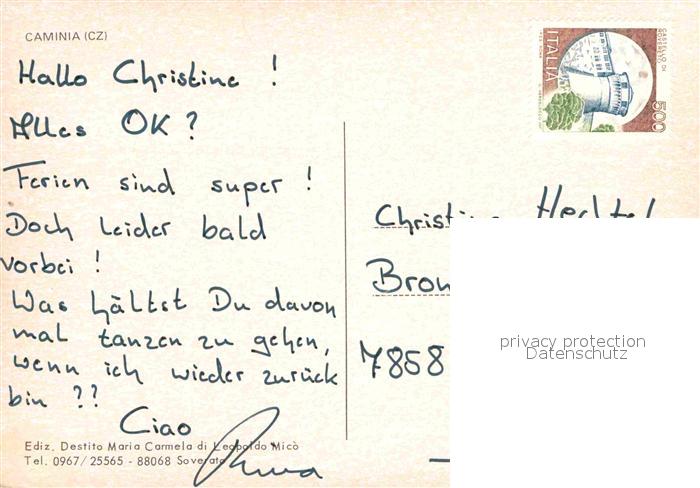 CAMINIA (CZ)
Hallo Christine !
Alles OK ?
Ferien sind super !
Doch leider bald
vorbei !
Was hältst Du davon
mal tanzen zu gehen,
wenn ich wieder zurück
bin ??
Ciao
Ediz. Destito Maria Carmela di Leopoldo Micò
Tel. 0967/25565 - 88068 Soverato
CASTELLO DI
ROVERETO
ITALIA
500
Christine
7858
privacy protection
Datenschutz